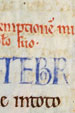 emptione m
lo suo.
TEBR
e in toto